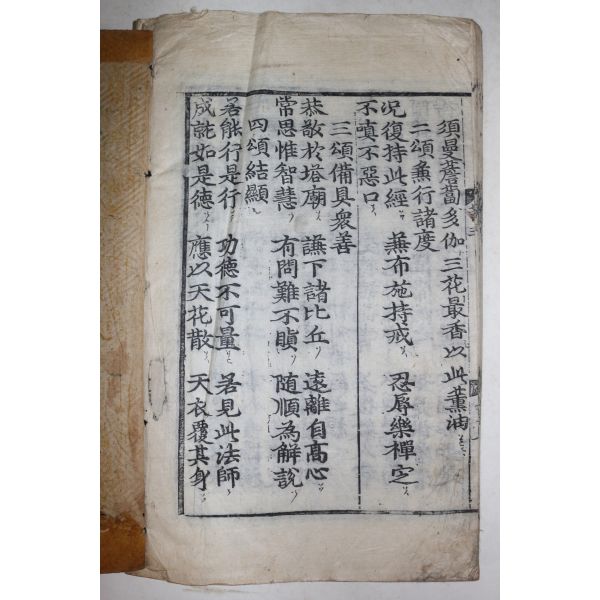 須曼薝蔔多伽三花最香以此薰油
二頌兼行諸度
況復持此經 兼布施持戒 忍辱樂禪定
不嗔不惡口
三頌備具衆善
恭敬於塔廟 謙下諸比丘 遠離自高心
常思惟智慧 有問難不瞋 随順為解說
四頌結顯
若能行是行 功德不可量 若見此法師
成就如是德 應以天花散 天衣覆其身